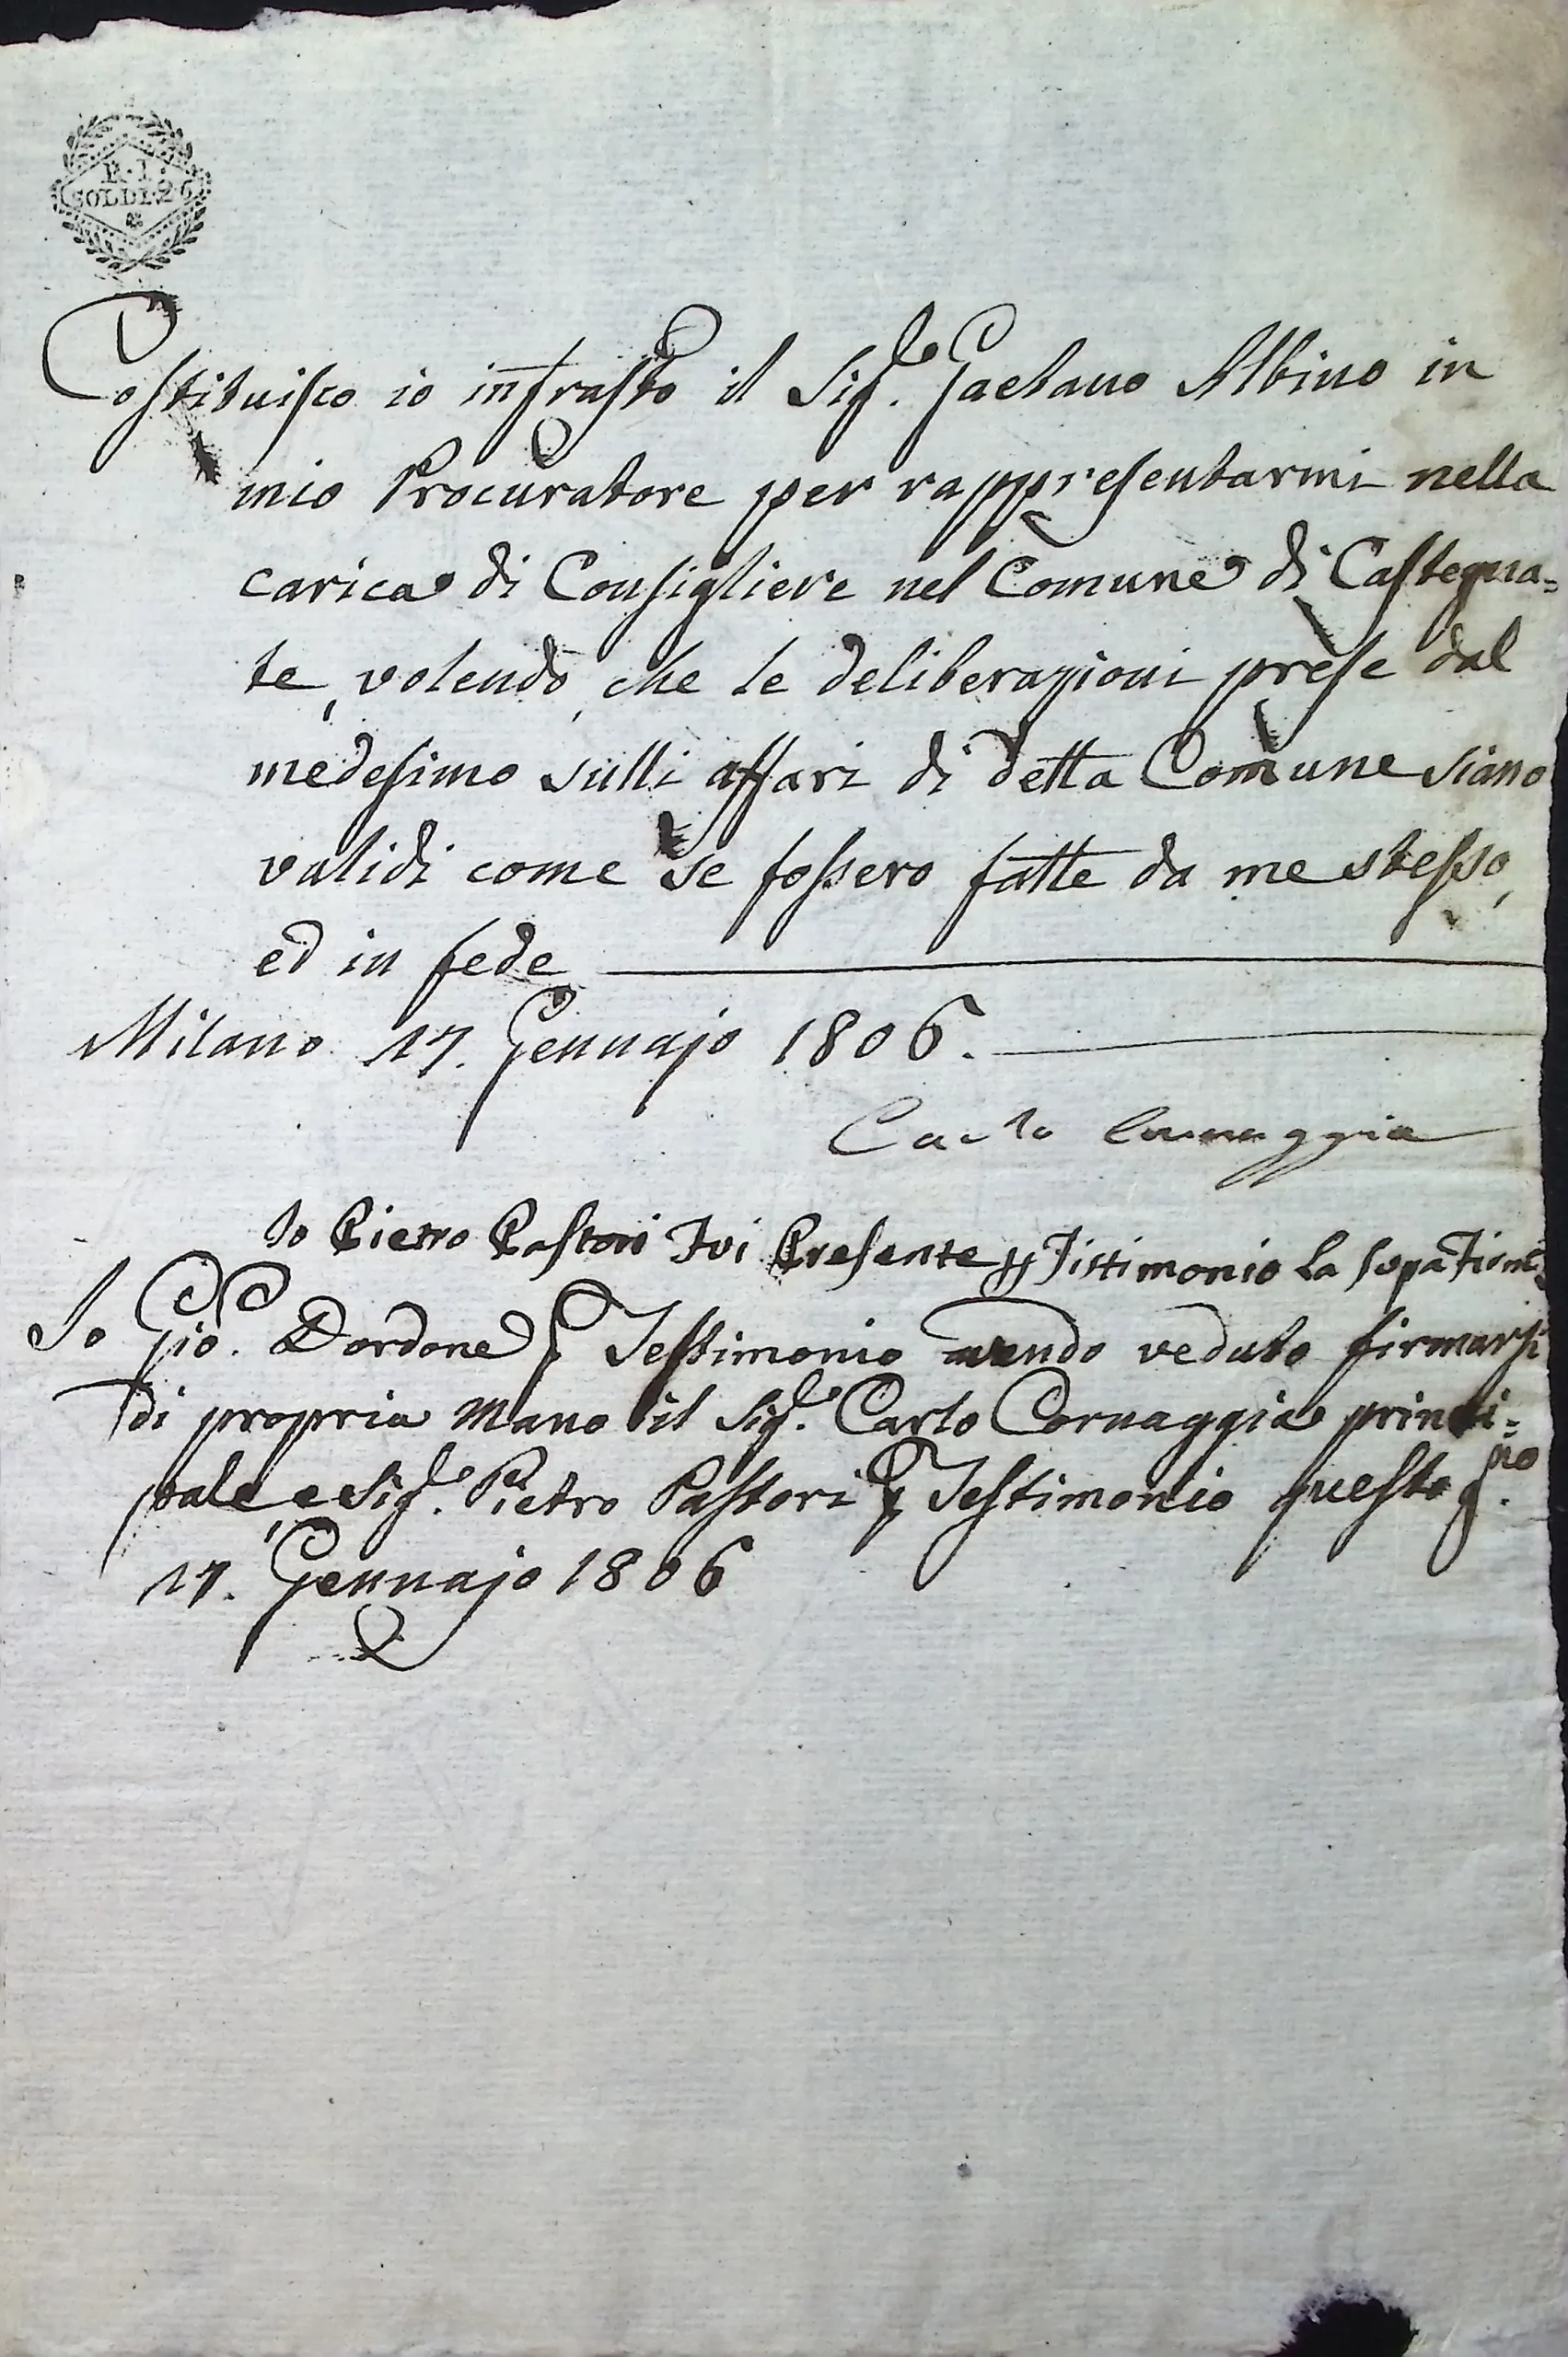 R. I.
SOLDI. 26
Costituisco io infrascto il Sig.e Gaetano Albino in
mio Procuratore per rappresentarmi nella
carica di Consigliere nel Comune di Castegna=
te, volendo, che le deliberazioni prese dal
medesimo sulli affari di detta Comune siano
validi come se fossero fatte da me stesso,
ed in fede
Milano 17. Gennajo 1806.
Carlo Cornaggia
Io Pietro Pastori Fui Presente Tistimonio La
Io Gio. Dordone Testimonio avendo veduto firmarsi
di propria Mano il Sig.e Carlo Cornaggia princi=
pale, e Sig.e Pietro Pastori Testimonio questo
17. Gennajo 1806